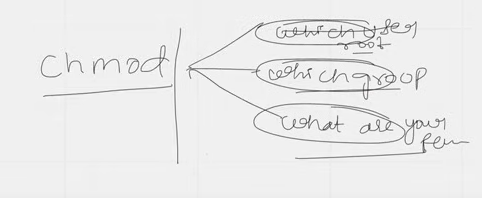 chmod
which user
root
which group
what are your